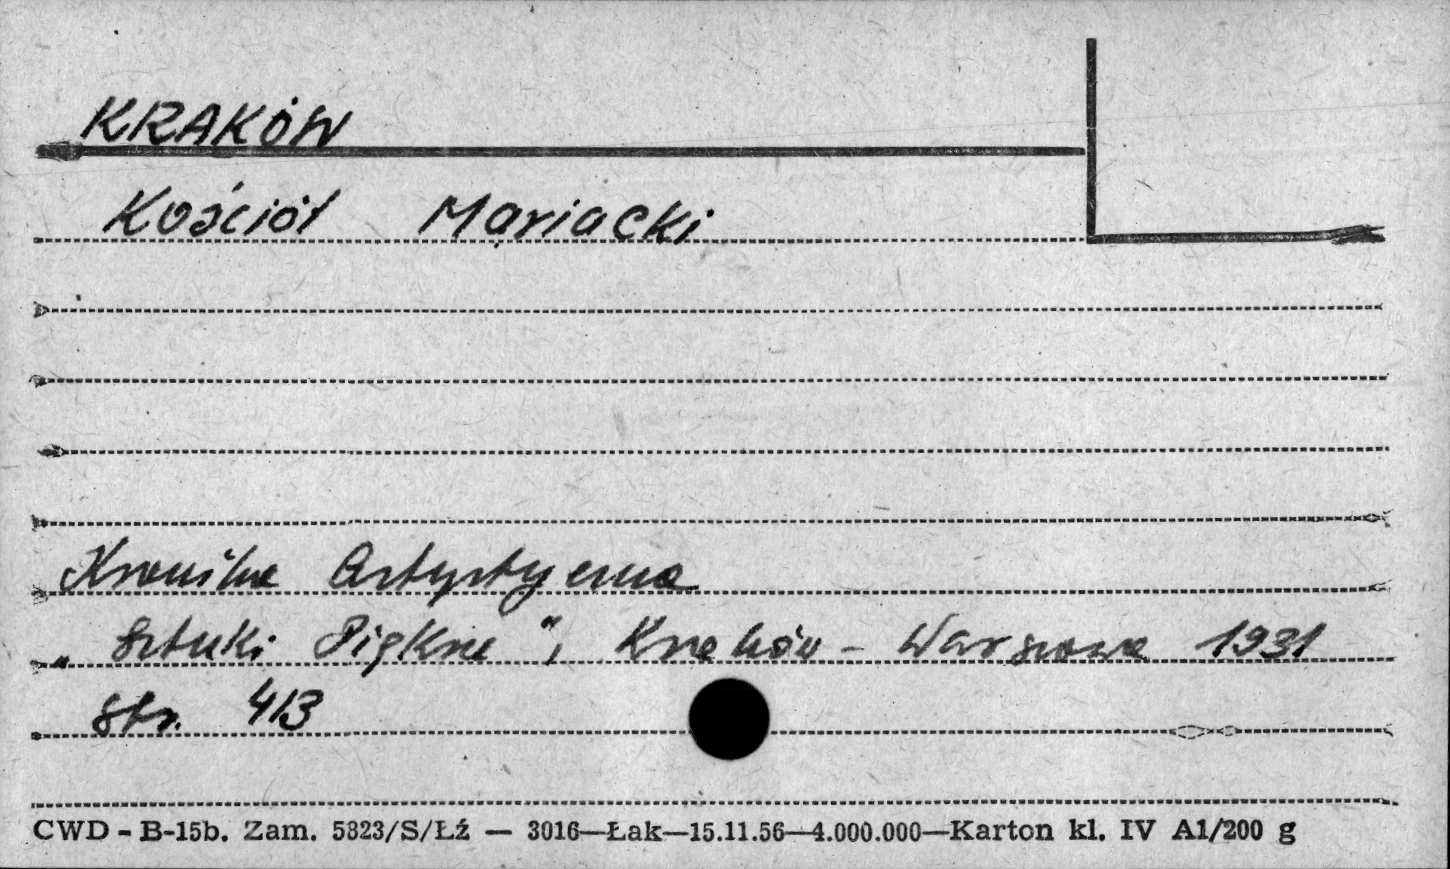 KRAKÓW
Kościół Mariacki
Kronika Artystyczna
„Sztuki Piękne", Kraków - Warszawa 1931
str. 413
CWD - B-15b. Zam. 5823/S/Łź — 3016—Łak—15.11.56—4.000.000—Karton kl. IV A1/200 g